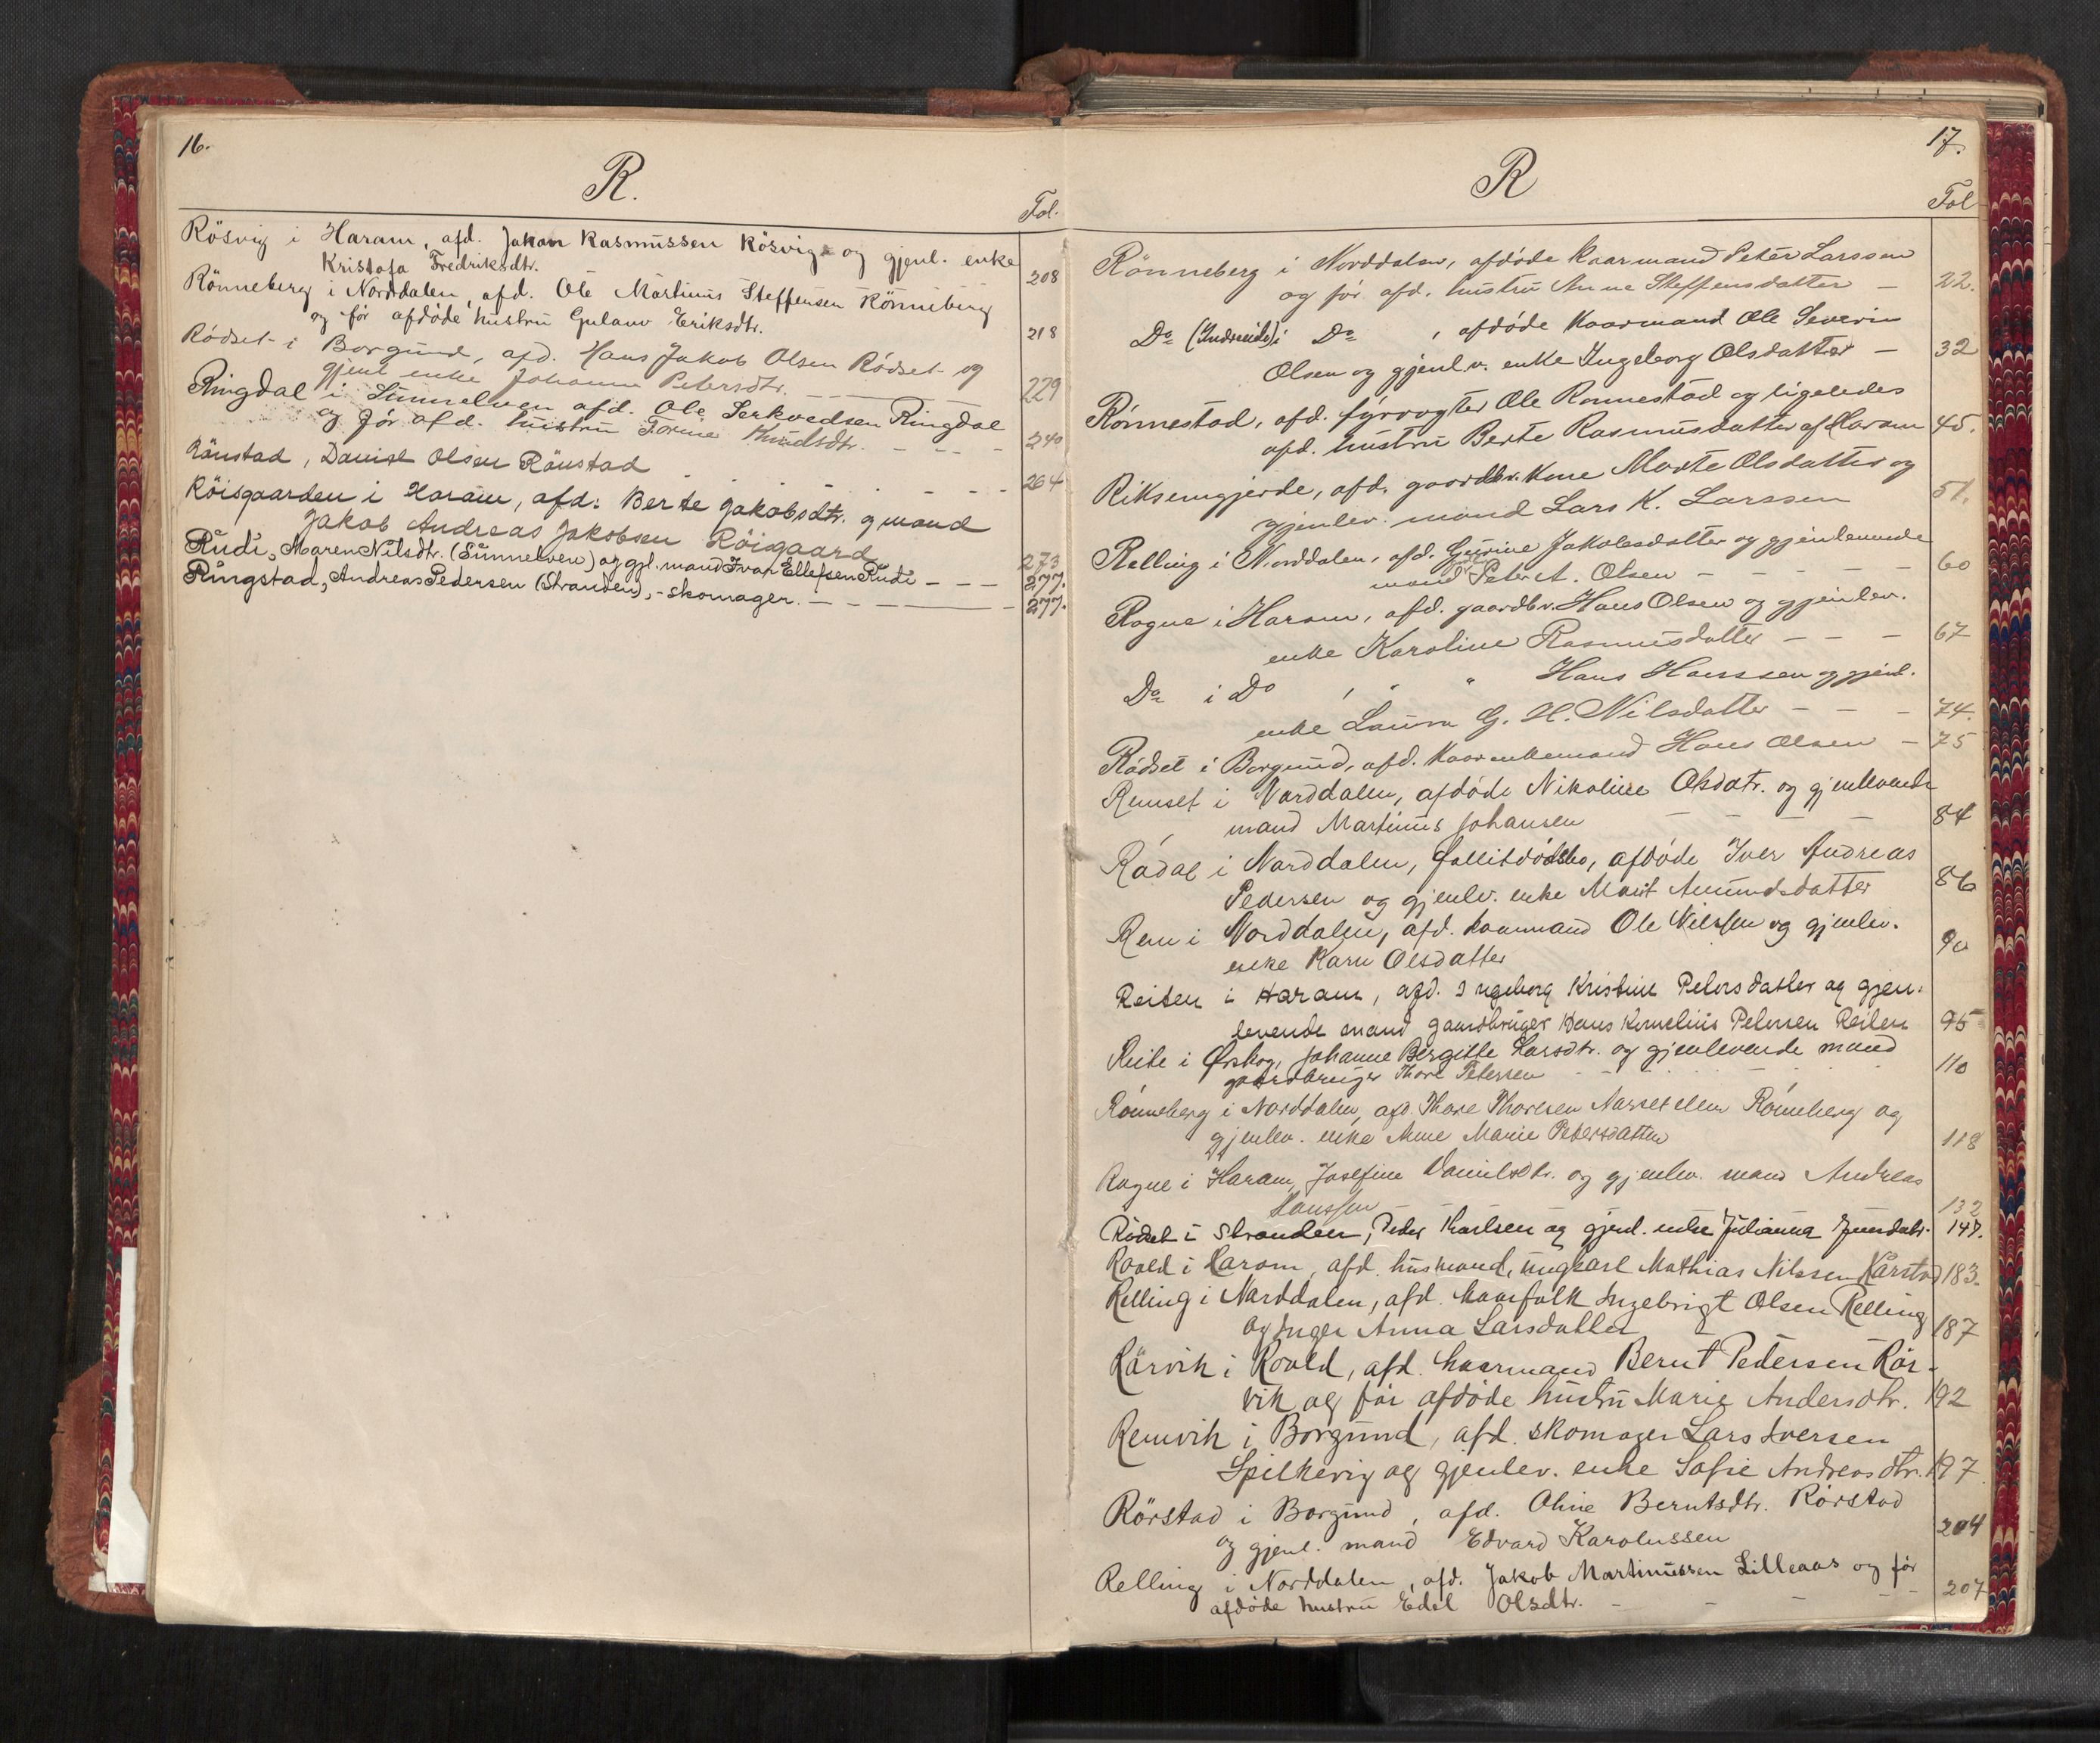 16.
R.
Fol.
Rösvig i Haram, afd. Jakan Rasmussen Rösvig og gjenl. enke
Kristofa Fredriksdtr. 208
Rönneberg i Norddalen, afd. Ole Martinus Steffensen Rönneberg
og før afdøde hustru Gulauv Eriksdtr. 218
Rödset i Borgund, afd. Hans Jakob Olsen Rödset og
gjenl enke Johanne Petersdtr. 229
Ringdal i Sunnelven afd. Ole Serkvedsen Ringdal
og før afd. hustru Torine Knudsdtr. - - - - 240
Rönstad, Daniel Olsen Rönstad - - - - 264
Röisgaarden i Haram, afd. Berte Jakobsdtr. og mand
Jakob Andreas Jakobsen Röisgaard 273
Rudi, Maren Nilsdtr. (Sunnelven) og gjl. mand Ivar Ellefsen Rudi - - - 277.
Ringstad, Andreas Pedersen (Stranden), - skomager. - - - 277.
17.
R
Fol
Rönneberg i Norddalen, afdøde kaarmand Peter Larssen
og før afd. hustru Anne Steffensdatter - 22.
Do (Indreeide) i Do , afdøde kaarmand Ole Severin
Olsen og gjenl.v. enke Ingeborg Olsdatter - 32
Rönnestad, afd. fyrvogter Ole Ronnestad og ligeledes
afd. hustru Berte Rasmusdatter af Haram 45.
Riksemgjerde, afd. gaardbr. kone Marte Olsdatter og
gjenlev. mand Lars K. Larssen 51.
Relling i Norddalen, afd. Gurine Jakobsdatter og gjenlevende
mand Peter A. Olsen - - - - - 60
Rogne i Haram, afd. gaardbr. Hans Olsen og gjenlev.
enke Karoline Rasmusdatter - - - 67
Do i Do , " " Hans Hanssen og gjenl.
enke Laura G. H. Nilsdatter - - - 74.
Rödset i Borgund, afd. kaarenkemand Hans Olsen - 75
Remset i Norddalen, afdøde Nikoline Olsdatr. og gjenlevende
mand Martinus Johansen - - - - 84
Rödal i Norddalen, fallitdödsbo, afdøde Iver Andreas
Pedersen og gjenlv. enke Marit Amundsdatter 86
Rem i Norddalen, afd. kaarmand Ole Nilssen og gjenlev.
enke Karn Olsdatter 90
Reiten i Haram, afd. Ingeborg Kristine Petersdatter og gjen-
levende mand gaardbruger Hans Kornelius Petersen Reiten 95
Reite i Ørskog, Johanne Bergitte Larsdtr. og gjenlevende mand
gaardbruger Thore Petersen - - - - 110
Rönneberg i Norddalen, afd. Thore Thoresen Nasset eller Röneberg og
gjenlev. enke Anne Marie Petersdatter 118
Rogne i Haram, Josefine Danielsdtr. og gjenlev. mand Andreas
Hanssen - - - - 132
Rödset i Stranden, Peder Karlsen og gjenl. enke Julianna 147.
Roald i Haram, afd. husmand, ungkarl Mathias Nilssen Kårstad 183.
Relling i Norddalen, afd. kaarfolk Ingebrigt Olsen Relling
og Inger Anna Larsdatter - 187
Rörvik i Roald, afd. kaarmand Bernt Pedersen Rör-
vik og før afdøde hustru Marie Andersdtr. 192
Remvik i Borgund, afd. skomager Lars Iversen
Spilkevig og gjenlev. enke Sofie Andreasdtr. 197
Rörstad i Borgund, afd. Oline Berntsdtr. Rörstad
og gjenl. mand Edvard Karolussen 204
Relling i Norddalen, afd. Jakob Martinussen Lilleaas og før
afdøde hustru Edel Olsdtr. - - - - 207